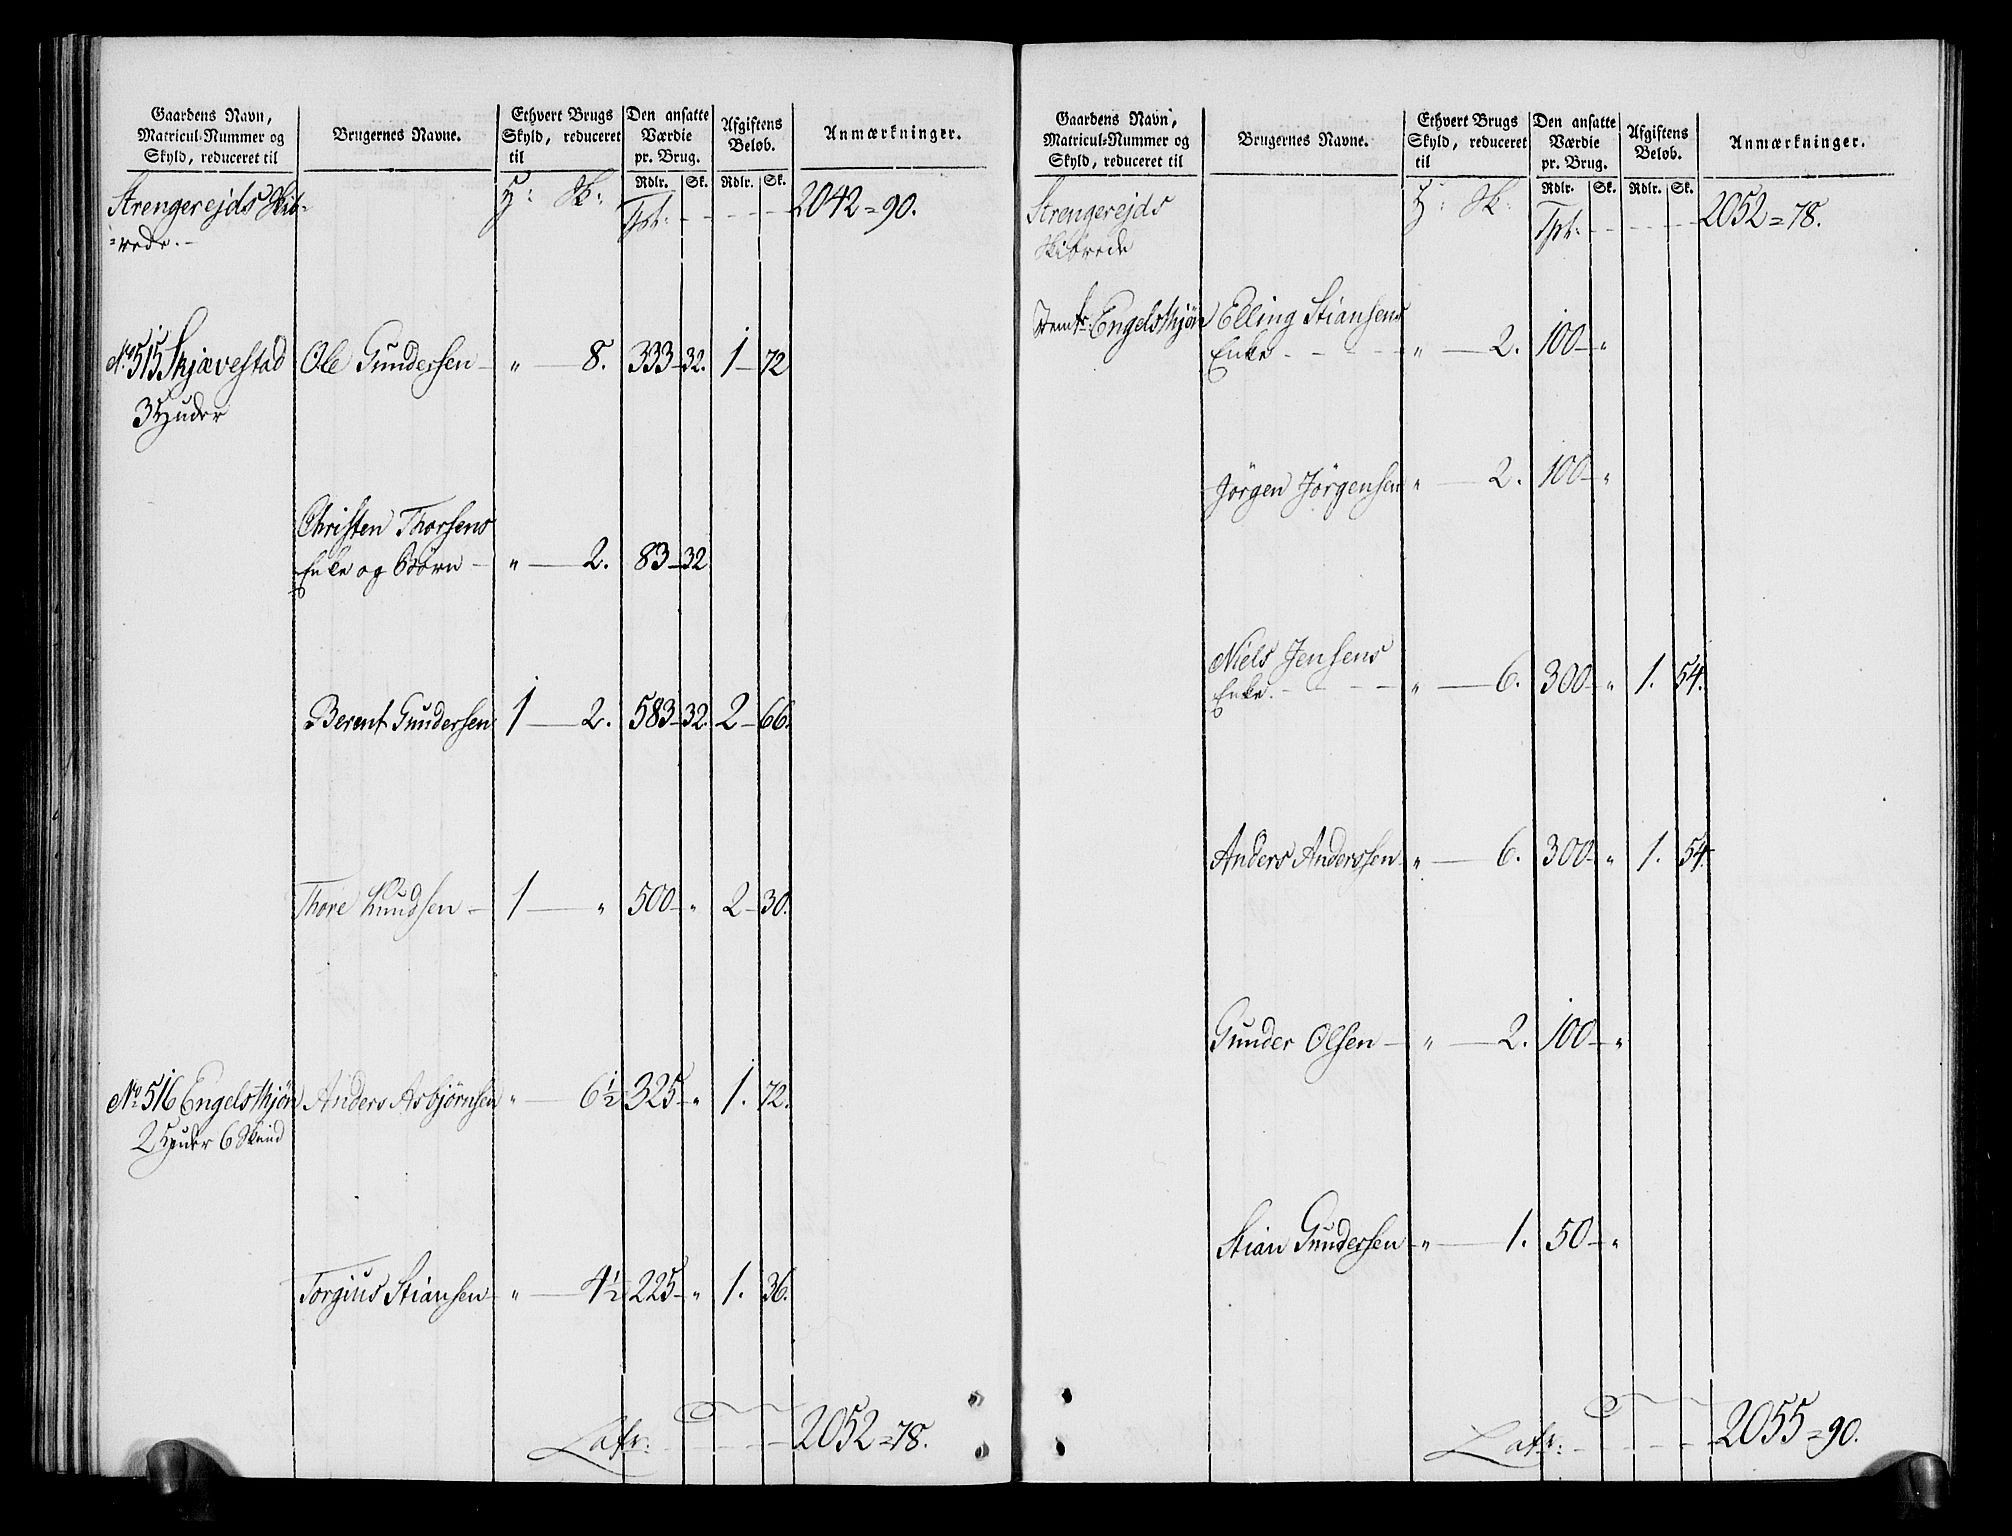 Gaardens Navn,
Matricul-Nummer og
Skyld, reduceret til
Brugernes Navne.
Ethvert Brugs
Skyld, reduceret
til
Den ansatte
Værdie
pr. Brug.
Afgiftens
Beløb.
Anmærkninger.
Rdlr. Sk. Rdlr. Sk.
Strengerejds Skib-
=rede.- H: Sk: Tpt: - - - - 2042=90.
No. 515 Skjævestad Ole Gundersen - „ — 8. 333-32. 1-72
3 Huder
Christen Thorsens
Enke og Børn - „ — 2. 83-32
Berent Gundersen 1 — 2. 583-32. 2-66.
Thore Knudsen - 1 — „ 500-„ 2-30.
No. 516 Engelskjøn Anders Asbjørnsen „ — 6½ 325-„ 1. 72.
2 Huder 6 Skind
Torgius Stiansen - „ — 4½ 225-„ 1. 36.
Lat: - - - - 2052=78.
Gaardens Navn,
Matricul-Nummer og
Skyld, reduceret til
Brugernes Navne.
Ethvert Brugs
Skyld, reduceret
til
Den ansatte
Værdie
pr. Brug.
Afgiftens
Beløb.
Anmærkninger.
Rdlr. Sk. Rdlr. Sk.
Strengerejds
Skibrede H: Sk: Tpt: - - - - 2052=78.
Engelskjøn Elling Stiansens
Enke - - - - „ — 2. 100-„
Jörgen Jörgensen „ — 2. 100-„
Niels Jensens
Enke. - - - - „ — 6. 300-„ 1. 54.
Anders Anderssen - „ — 6. 300-„ 1. 54.
Gunder Olsen - „ — 2. 100-„
Stian Gundersen - „ — 1. 50-„
Lat: - - - - 2055=90.